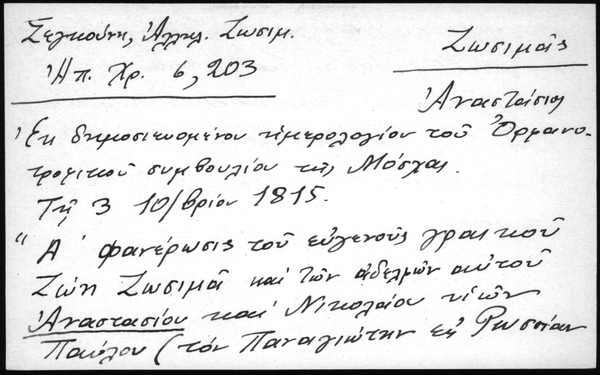 Σεγκούνη, Ἀλληλ. Ζωσιμ.
Ἠπ. Χρ. 6, 203
Ζωσιμᾶς
Ἀναστάσιος
Ἐκ δημοσιευομένου ἡμερολογίου τοῦ Ὀρφανο-
τροφικοῦ συμβουλίου τῆς Μόσχας.
Τῇ 3 10/βρίου 1815.
"Α' φανέρωσις τοῦ εὐγενοῦς γραικοῦ
Ζώη Ζωσιμᾶ καὶ τῶν ἀδελφῶν αὐτοῦ
Ἀναστασίου καὶ Νικολάου υἱῶν
Παύλου (τὸν Παναγιώτην ἐκ Ρωσσίαν